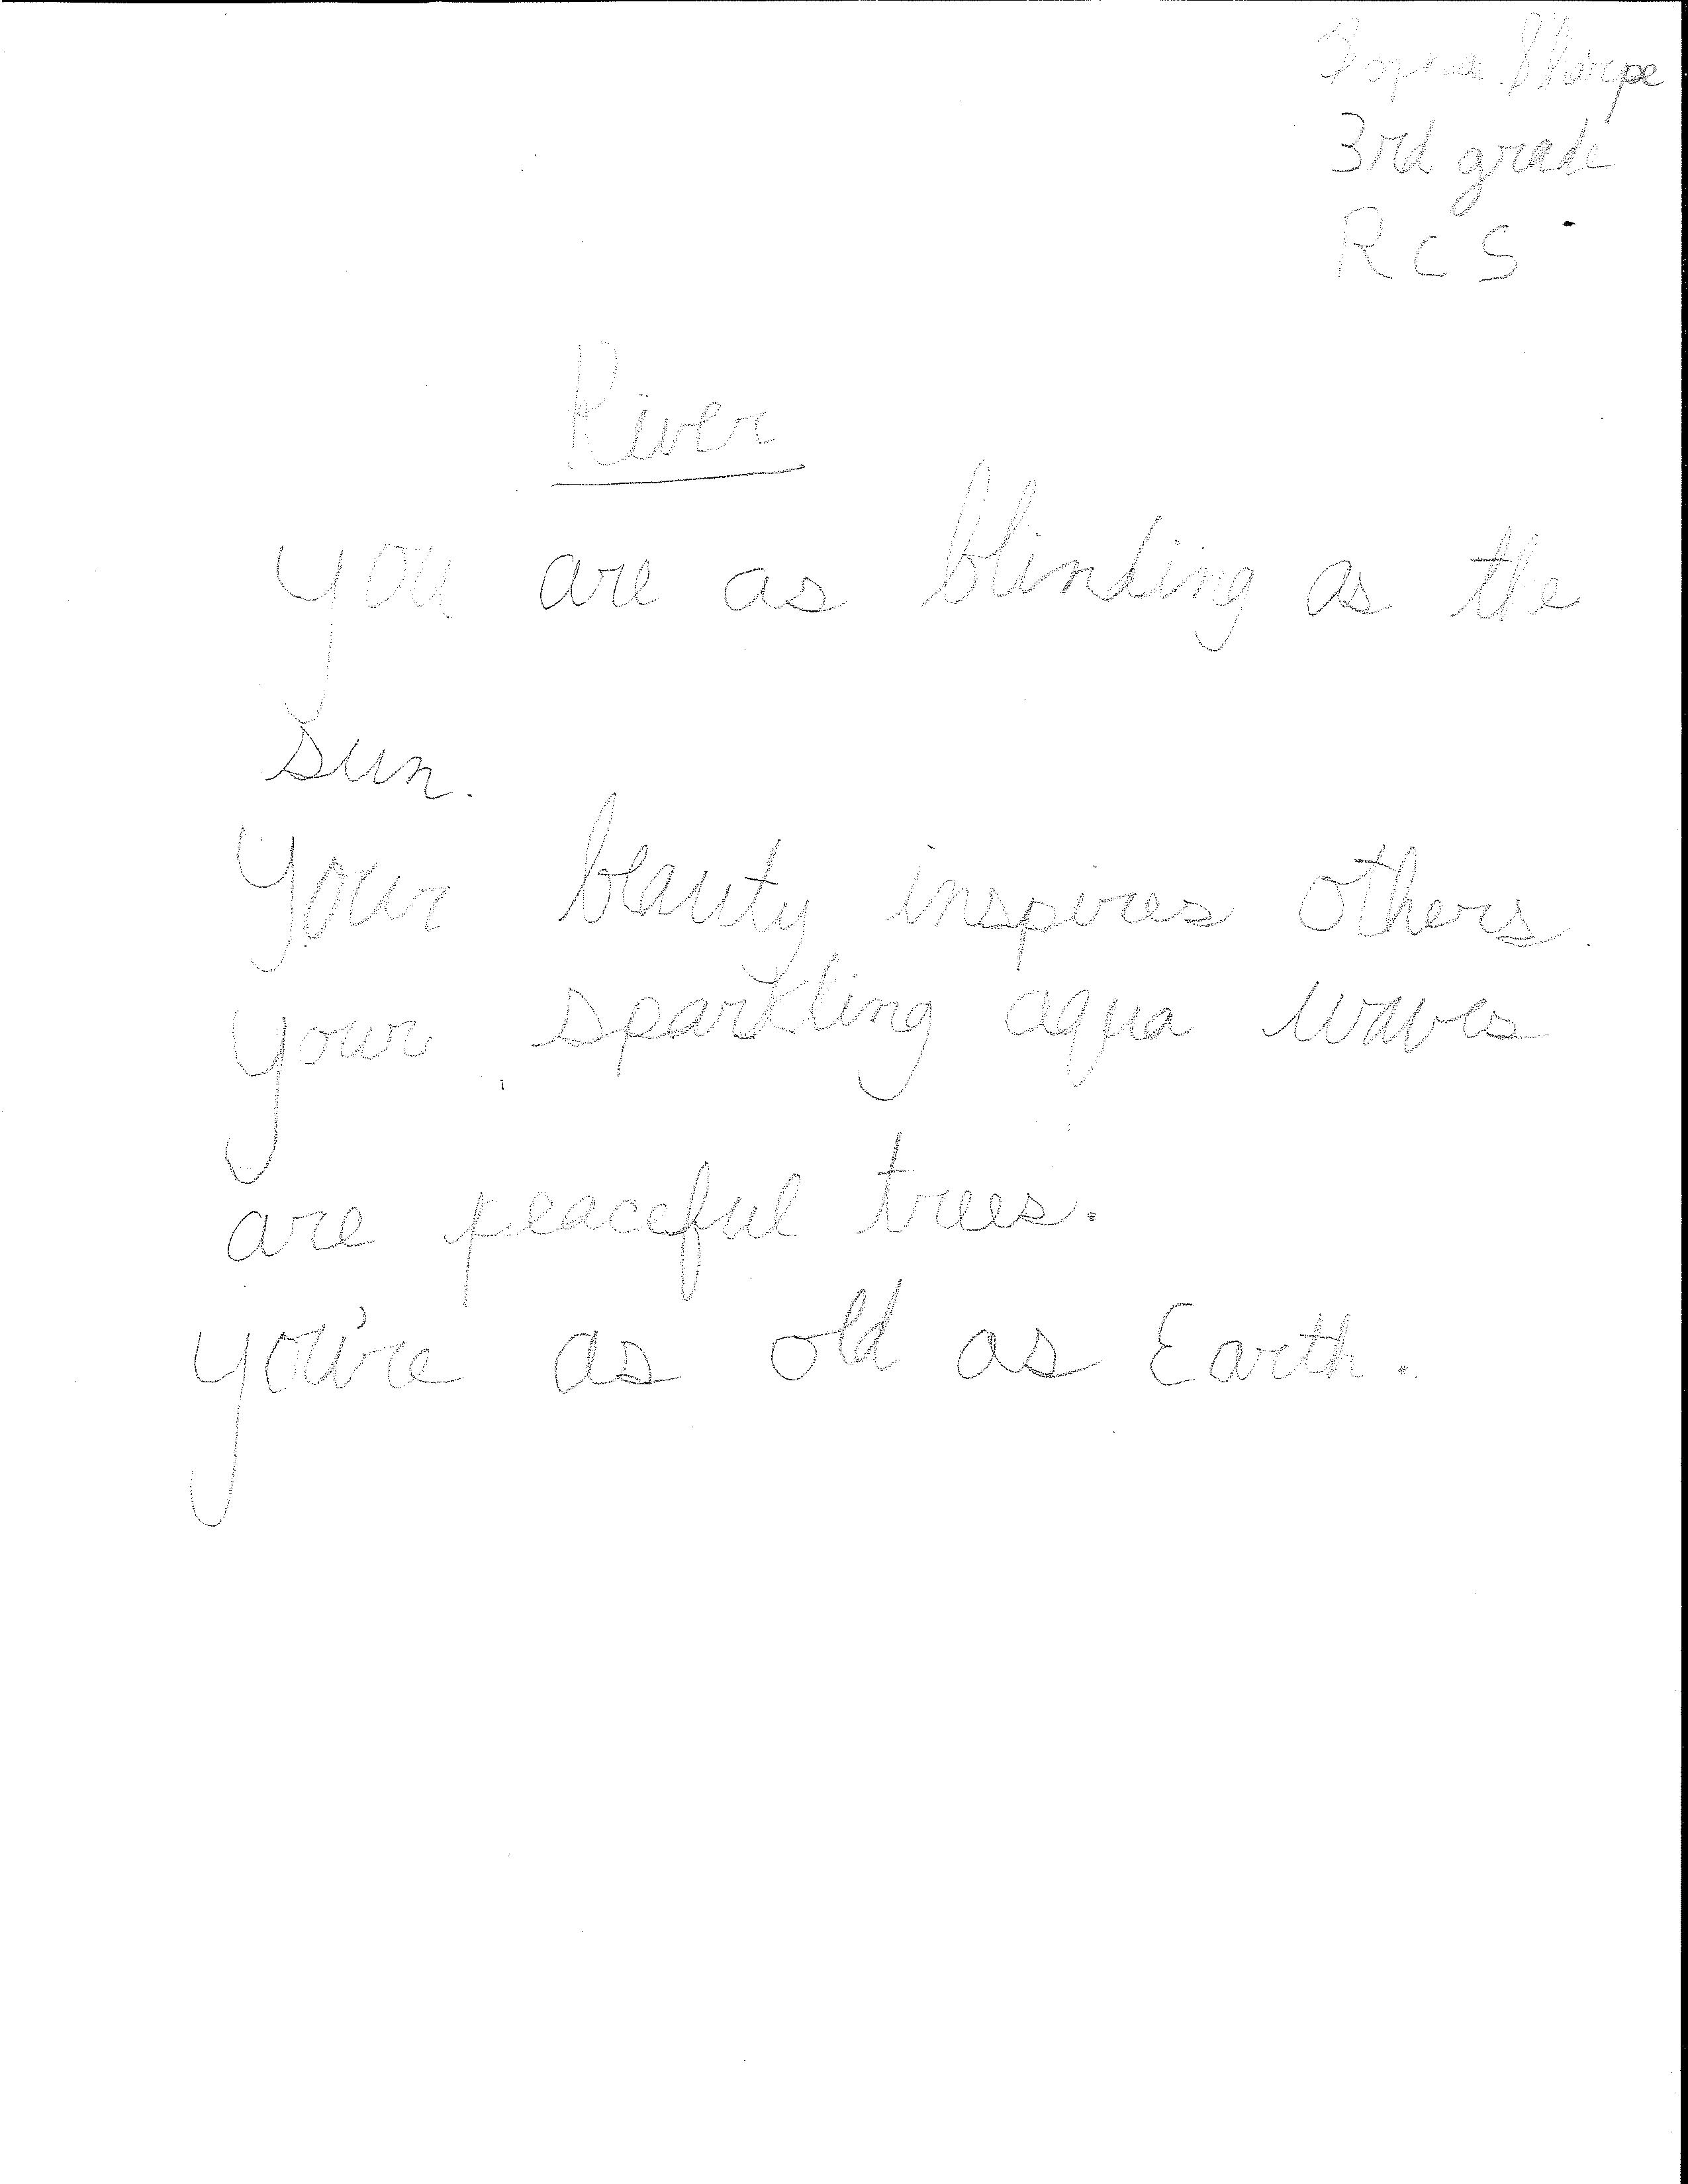 Sharpe
3rd grade
RCS
River
You are as blinding as the
sun.
Your beauty inspires others.
Your sparkling aqua waves
are peaceful trees.
You're as old as Earth.